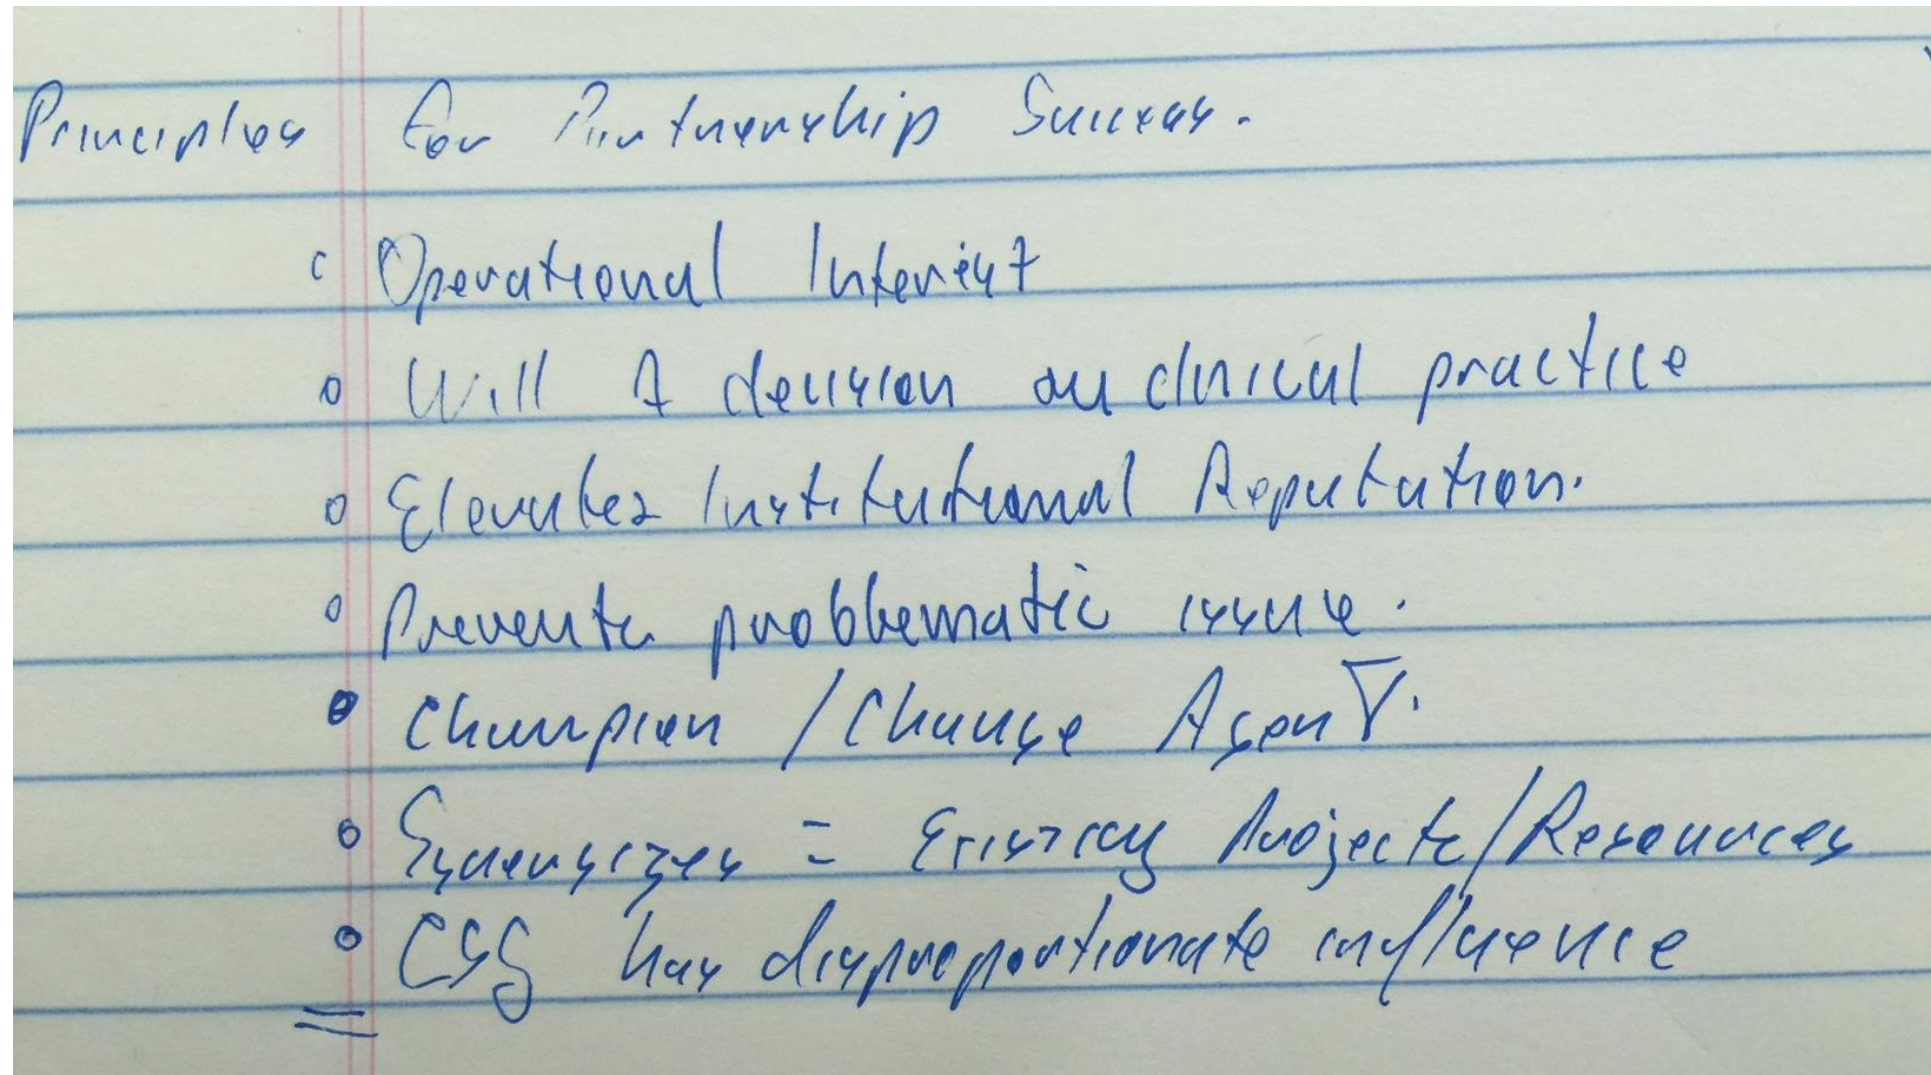 Principles for Partnership Success.
Operational Interest
Will A decision on clinical practice
Elevates Institutional Reputation.
Prevents problematic issue.
Champion / Change Agent.
Synergizes = Existing Projects/Resources
CSG has disproportionate influence